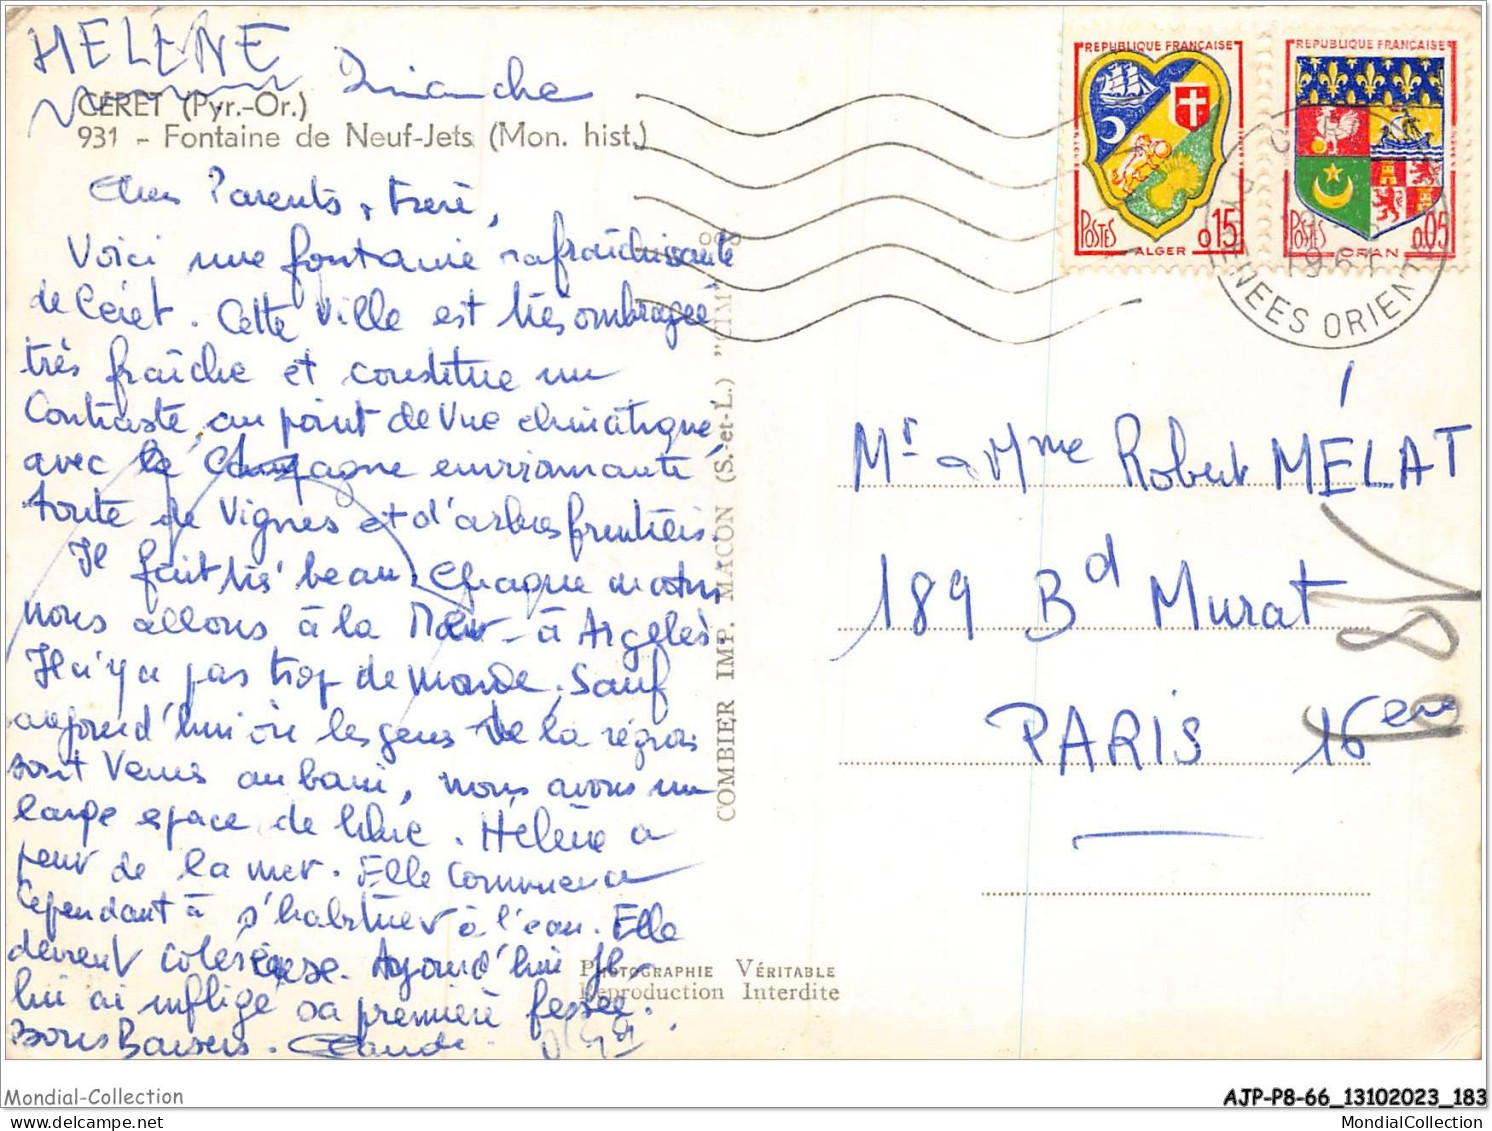 HÉLÈNE
Dimanche
CÉRET (Pyr.-Or.)
931 - Fontaine de Neuf-Jets (Mon. hist.)
Chers Parents, frère,
Voici une fontaine rafraîchissante
de Céret. Cette Ville est très ombragée
très fraîche et constitue un
Contraste au point de Vue climatique
avec la Campagne environnante
toute de Vignes et d'arbres fruitiers.
Il fait très beau. Chaque matin
nous allons à la Mer - à Argelès.
Il n'y a pas trop de monde. Sauf
aujourd'hui où les gens de la région
sont Venus au bain, nous avons un
large espace de libre. Hélène a
peur de la mer. Elle commence
Cependant à s'habituer à l'eau. Elle
devient coléreuse. Aujourd'hui je
lui ai infligé sa première fessée.
Bons Baisers. Claude
COMBIER IMP. MACON (S.-et-L.) "CIM"
PHOTOGRAPHIE VÉRITABLE
Reproduction Interdite
REPUBLIQUE FRANÇAISE
POSTES
ALGER
0,15
REPUBLIQUE FRANÇAISE
POSTES
ORAN
0,05
PYRENEES ORIENT
Mr & Mme Robert MÉLAT
189 Bd Murat
PARIS 16ème
Mondial-Collection
AJP-P8-66_13102023_183
MondialCollection